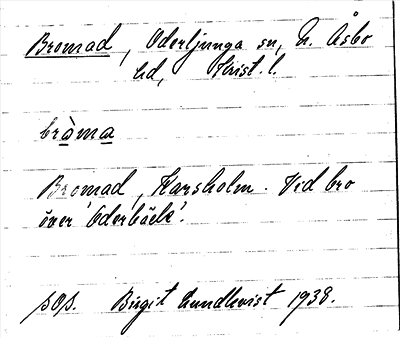 Bromad, Oderljunga sn, N. Åsbo
hd, Krist. l.
bròma
Bromad, Karsholm. Vid bro
över 'Oderbäck'.
sos. Birgit Lundkvist 1938.